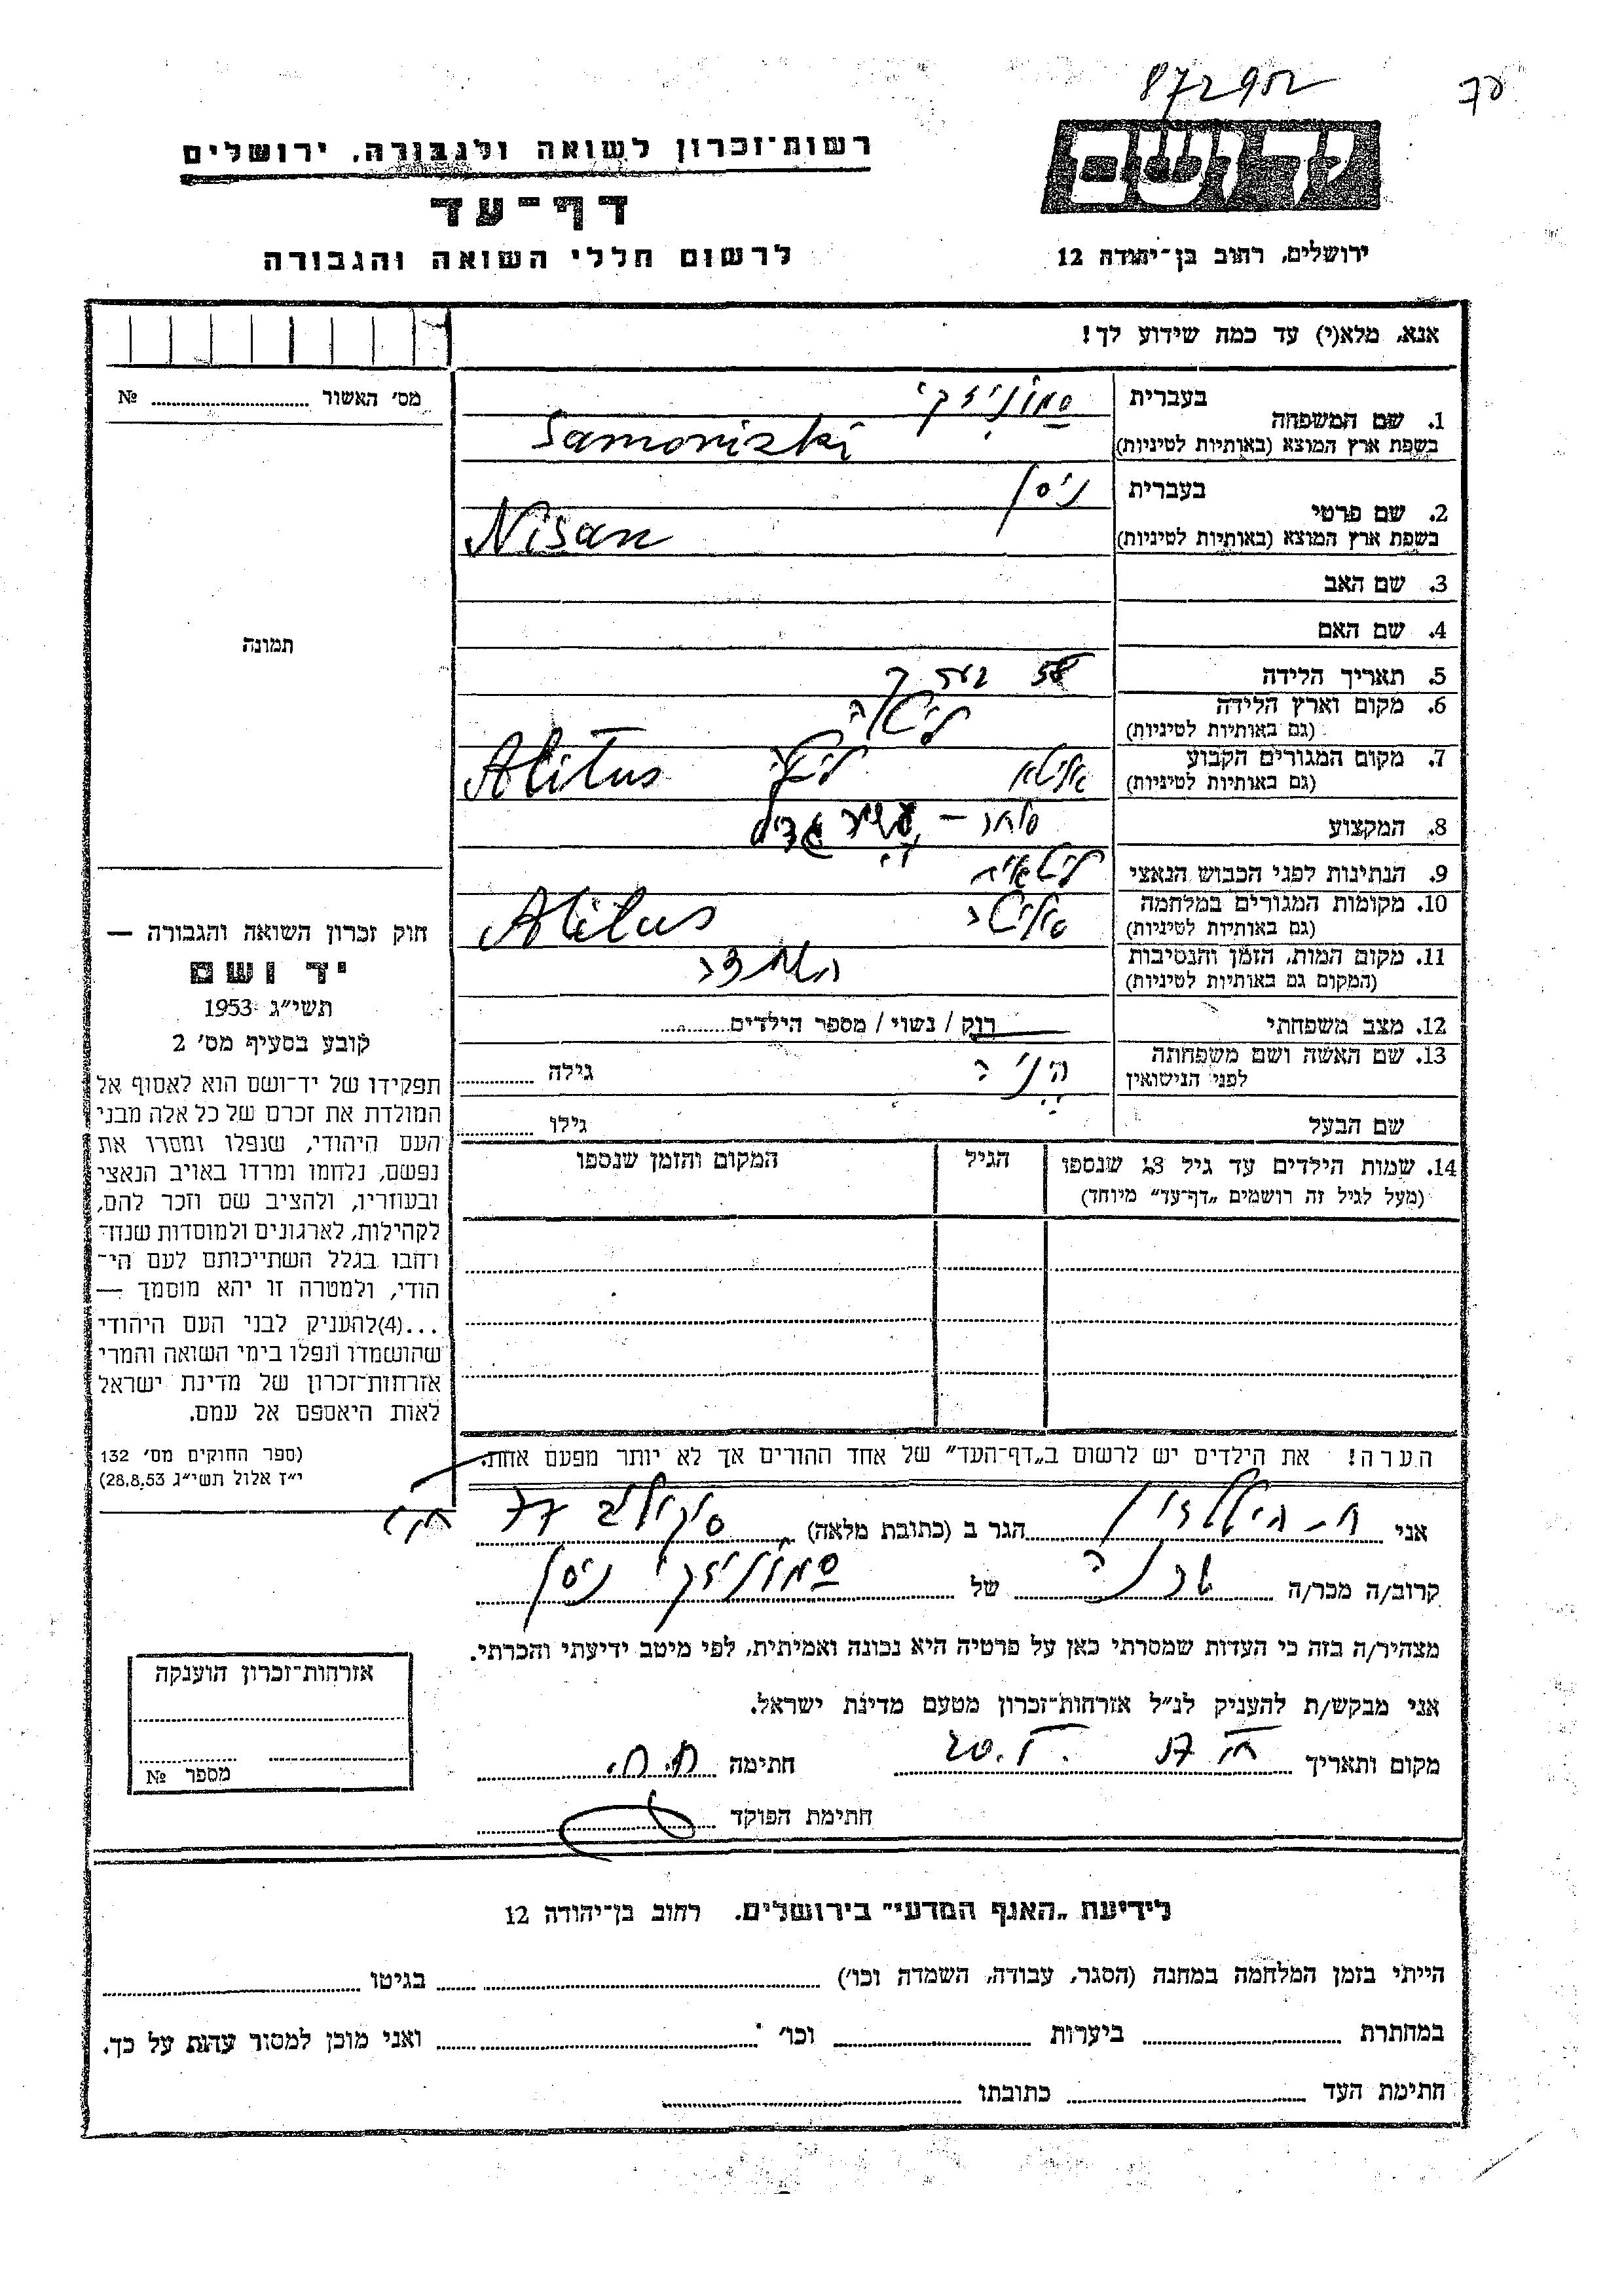 872952
יד ושם
רשות־זכרון לשואה ולגבורה, ירושלים
דף־עד
לרשום חללי השואה והגבורה
ירושלים, רחוב בן־יהודה 12
אנא, מלא(י) עד כמה שידוע לך!
מס' האשור № 
תמונה
1. שם המשפחה
בעברית סמוניזקי
בשפת ארץ המוצא (באותיות לטיניות) Samoniski
2. שם פרטי
בעברית ניסן
בשפת ארץ המוצא (באותיות לטיניות) Nisan
3. שם האב
4. שם האם
5. תאריך הלידה
6. מקום וארץ הלידה ליטא
(גם באותיות לטיניות)
7. מקום המגורים הקבוע ליטא Alitus
(גם באותיות לטיניות)
8. המקצוע סוחר –
9. הנתינות לפני הכבוש הנאצי ליטאית
10. מקומות המגורים במלחמה Alitus
(גם באותיות לטיניות)
11. מקום המות, הזמן והנסיבות
(המקום גם באותיות לטיניות)
12. מצב משפחתי רוק / נשוי / מספר הילדים
13. שם האשה ושם משפחתה
לפני הנישואין
גילה
שם הבעל גילו
14. שמות הילדים עד גיל 18 שנספו
(מעל לגיל זה רושמים „דף־עד" מיוחד)
הגיל
המקום והזמן שנספו
הערה! את הילדים יש לרשום ב„דף־העד" של אחד ההורים אך לא יותר מפעם אחת.
חוק זכרון השואה והגבורה —
יד ושם
תשי"ג 1953
קובע בסעיף מס' 2
תפקידו של יד־ושם הוא לאסוף אל
המולדת את זכרם של כל אלה מבני
העם היהודי, שנפלו ומסרו את
נפשם, נלחמו ומרדו באויב הנאצי
ובעוזריו, ולהציב שם וזכר להם,
לקהילות, לארגונים ולמוסדות שנח־
רחבו בגלל השתייכותם לעם הי־
הודי, ולמטרה זו יהא מוסמך —
...(4)להעניק לבני העם היהודי
שהושמדו ונפלו בימי השואה והמרי
אזרחות־זכרון של מדינת ישראל
לאות היאספם אל עמם.
(ספר החוקים מס' 132
י"ז אלול תשי"ג 28.8.53)
אני הגר ב (כתובת מלאה) סוקולוב 77
קרוב/ה מכר/ה של סמוניזקי ניסן
מצהיר/ה בזה כי העדות שמסרתי כאן על פרטיה היא נכונה ואמיתית, לפי מיטב ידיעתי והכרתי.
אני מבקש/ת להעניק לנ"ל אזרחות־זכרון מטעם מדינת ישראל.
מקום ותאריך חתימה
חתימת הפוקד
אזרחות־זכרון הוענקה
מספר №
לידיעת „האגף המדעי" בירושלים. רחוב בן־יהודה 12
הייתי בזמן המלחמה במחנה (הסגר, עבודה, השמדה וכו') בגיטו
במחתרת ביערות וכו' ואני מוכן למסור עדות על כך.
חתימת העד כתובתו